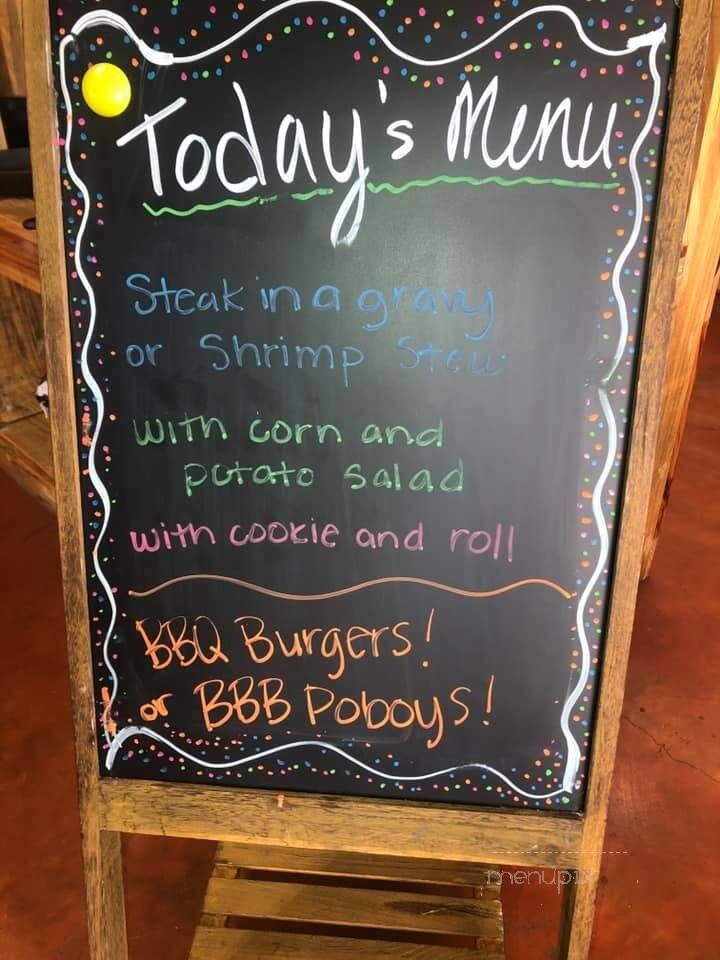 Today's Menu
Steak in a gravy
or Shrimp Stew
with corn and
potato salad
with cookie and roll
BBQ Burgers!
or BBB Poboys!
menupix